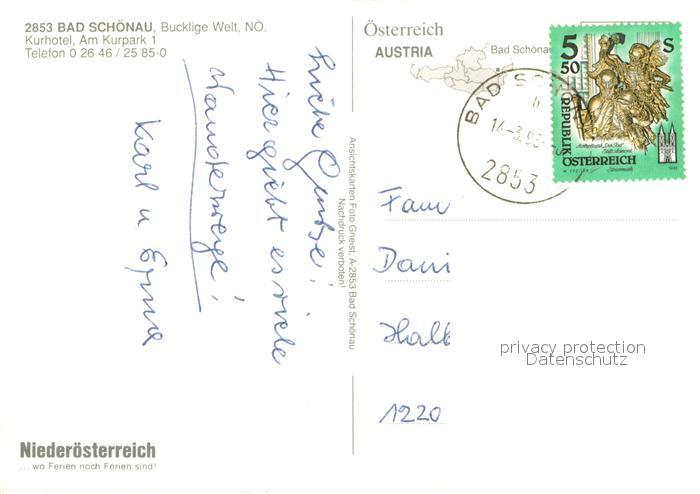 2853 BAD SCHÖNAU, Bucklige Welt, NÖ.
Kurhotel, Am Kurpark 1
Telefon 0 26 46 / 25 85-0
Liebe
Hier giebt es viele
Wanderwege!
Karl u Erna
Niederösterreich
... wo Ferien noch Ferien sind!
Ansichtskarten Foto Gneist, A-2853 Bad Schönau
Nachdruck verboten!
Österreich
AUSTRIA
Bad Schönau
BAD
2853
5 50 S
REPUBLIK
ÖSTERREICH
Fam
Dani
Halb
1220
privacy protection
Datenschutz